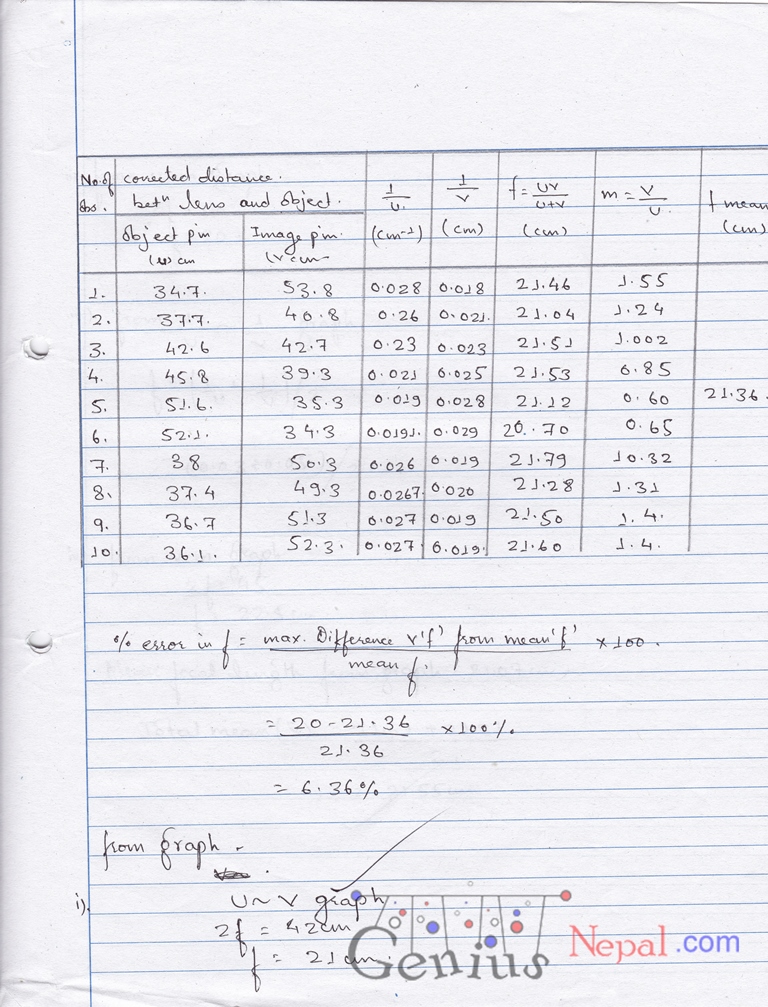 No. of obs. | corrected distance. betⁿ lens and object. | 1/u. (cm⁻¹) | 1/v (cm) | f = uv/u+v (cm) | m = v/u. | f mean (cm)
object pin (u) cm | Image pin. (v cm
1. | 34.7. | 53.8 | 0.028 | 0.018 | 21.46 | 1.55
2. | 37.7. | 40.8 | 0.26 | 0.021. | 21.04 | 1.24
3. | 42.6 | 42.7 | 0.23 | 0.023 | 21.51 | 1.002
4. | 45.8 | 39.3 | 0.021 | 0.025 | 21.53 | 0.85
5. | 51.6. | 35.3 | 0.019 | 0.028 | 21.12 | 0.60 | 21.36.
6. | 52.1. | 34.3 | 0.0191. | 0.029 | 20.70 | 0.65
7. | 38 | 50.3 | 0.026 | 0.019 | 21.79 | 10.32
8. | 37.4 | 49.3 | 0.0267. | 0.020 | 21.28 | 1.31
9. | 36.7 | 51.3 | 0.027 | 0.019 | 21.50 | 1.4.
10. | 36.1. | 52.3. | 0.027. | 0.019. | 21.60 | 1.4.
% error in f = max. Difference v'f' from mean 'f' × 100.
mean f.
= 20 - 21.36 × 100%
21.36
= 6.36%
from graph -
i). u ~ v graph
2f = 42cm
f = 21cm.
Genius Nepal.com